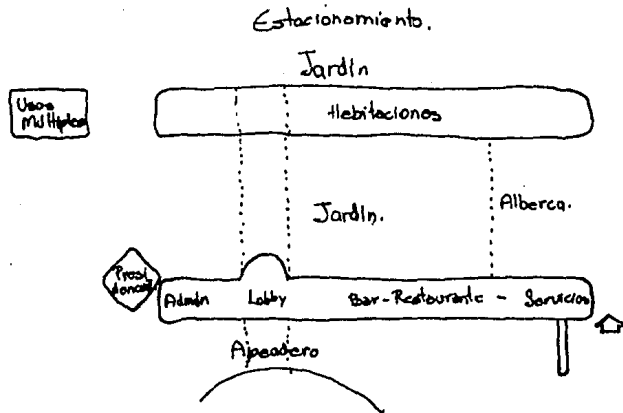 Estacionamiento.
Jardín
Usos
Múltiples
Habitaciones
Jardín.
Alberca.
Presi
dencial
Admón Lobby Bar-Restaurante - Servicios
Apeadero